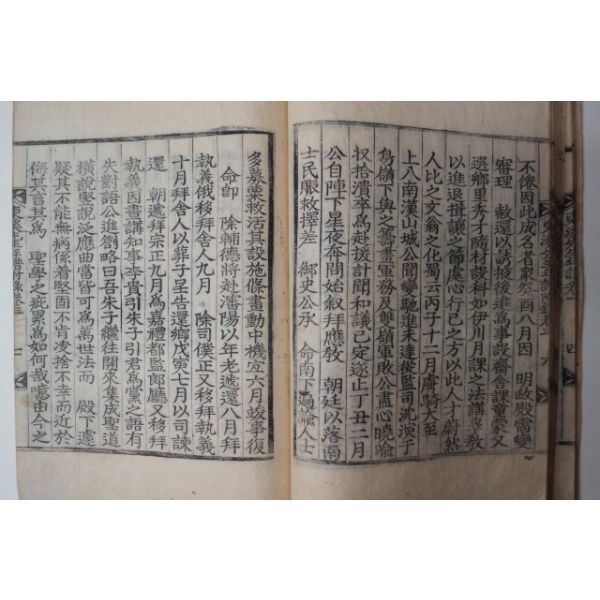 不倦因此成名者衆癸酉八月因 明政殿雷變
審理 赦還以誘掖後進爲事設齋舍課童蒙又
選鄕里秀才隨材設科如伊川月課之法講專敎
以進退揖讓之節處心行己之方以此人才蔚然
人比之文翁之化蜀云丙子十二月虜騎大至
上入南漢山城公聞變馳進未達從監司沈演于
鳥嶺下與之籌畫軍務及雙嶺軍敗公畫心曉喩
收拾潰卒爲赴援計聞和議已定遂止丁丑二月
公自陣下星夜奔問始叙拜應敎 朝廷以落南
士民賑救擇差 御史公承 命南下遍 人士
多募粟救活其設施條畫動中機宜六月竣事復
命卽 除輔德將赴瀋陽以年老遞還八月拜
執義俄移拜舍人九月 除司僕正又移拜執義
十月拜舍人以葬子呈告還鄕戊寅七月以司諫
還 朝遞拜宗正九月爲嘉禮都監郞廳又移拜
執義因晝講知事李貴引朱子引君爲黨之語有
失對語公進劄略曰吾朱子繼往開來集成聖道
橫說竪說泛應曲當皆可爲萬世法而 殿下遽
疑其不能無病係着堅固不肯凌捨不幸而近於
侮其言其爲 聖學之疵累爲如何哉 由今之